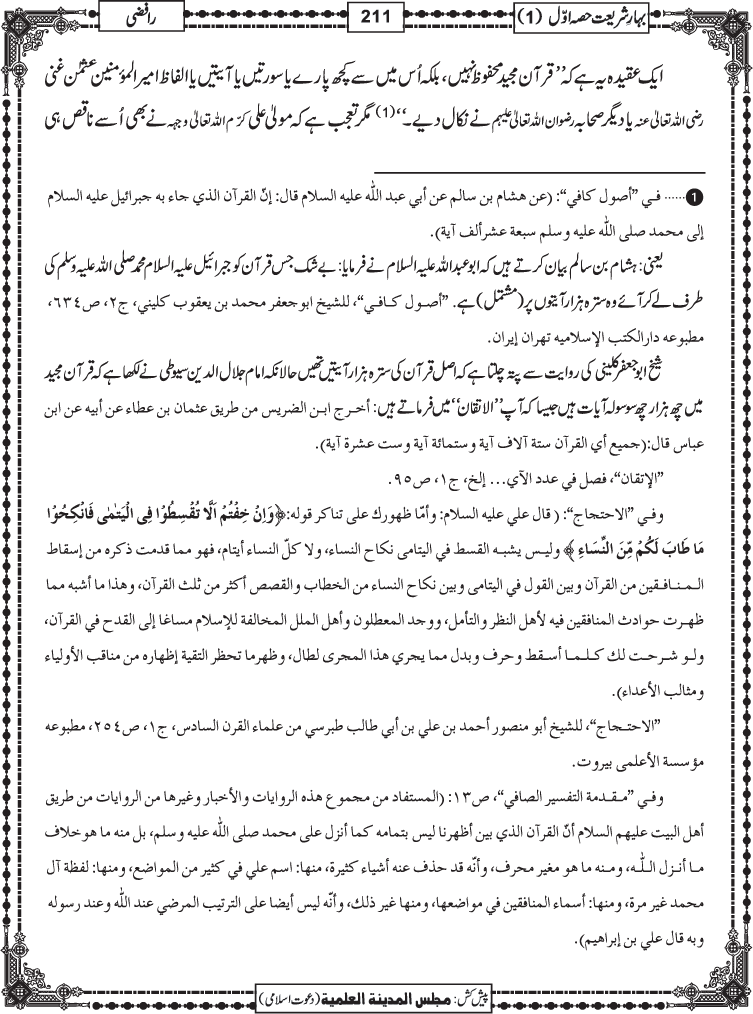 بہارِشریعت حصہ اوّل (1)
211
رافضی
ایک عقیدہ یہ ہے کہ ’’قرآن مجید محفوظ نہیں، بلکہ اُس میں سے کچھ پارے یا سورتیں یا آیتیں یا الفاظ امیر المؤمنین عثمٰن غنی
رضی اللہ تعالیٰ عنہ یا دیگر صحابہ رضوان اللہ تعالیٰ علیہم نے نکال دیے۔‘‘(1) مگر تعجب ہے کہ مولیٰ علی کرّم اللہ تعالیٰ وجہہ نے بھی اُسے ناقص ہی
1...... فـي ”أصول كافي“: (عن هشام بن سالم عن أبي عبد اللّٰه عليه السلام قال: إنّ القرآن الذي جاء به جبرائيل عليه السلام
إلى محمد صلى اللّٰه عليه وسلم سبعة عشرألف آية).
یعنی: ہشام بن سالم بیان کرتے ہیں کہ ابو عبداللہ علیہ السلام نے فرمایا: بے شک جس قرآن کو جبرائیل علیہ السلام محمد صلی اللہ علیہ وسلم کی
طرف لے کر آئے وہ سترہ ہزار آیتوں پر (مشتمل) ہے۔ ”أصـول كـافـي“، للشيخ ابوجعفر محمد بن يعقوب كليني، ج٢، ص٦٣٤،
مطبوعه دارالكتب الإسلاميه تهران إيران.
شیخ ابو جعفر کلینی کی روایت سے پتہ چلتا ہے کہ اصل قرآن کی سترہ ہزار آیتیں تھیں حالانکہ امام جلال الدین سیوطی نے لکھا ہے کہ قرآن مجید
میں چھ ہزار چھ سو سولہ آیات ہیں جیسا کہ آپ ’’الاتقان‘‘ میں فرماتے ہیں: أخـرج ابـن الضريس من طريق عثمان بن عطاء عن أبيه عن ابن
عباس قال:(جميع أي القرآن ستة آلاف آية وستمائة آية وست عشرة آية).
”الإتقان“، فصل في عدد الآي... إلخ، ج١، ص٩٥.
وفـي ”الاحتجاج“: ( قال علي عليه السلام: وأمّا ظهورك على تناكر قوله:﴿وَاِنْ خِفْتُمْ اَلَّا تُقْسِطُوْا فِی الْیَتٰمٰی فَانْكِحُوْا
مَا طَابَ لَكُمْ مِّنَ النِّسَاءِ﴾ وليـس يشبـه القسط في اليتامى نكاح النساء، ولا كلّ النساء أيتام، فهو مما قدمت ذكره من إسقاط
المـنـافـقين من القرآن وبين القول في اليتامى وبين نكاح النساء من الخطاب والقصص أكثر من ثلث القرآن، وهذا ما أشبه مما
ظهـرت حوادث المنافقين فيه لأهل النظر والتأمل، ووجد المعطلون وأهل الملل المخالفة للإسلام مساغا إلى القدح في القرآن،
ولـو شـرحـت لك كـلـمـا أسقـط وحرف وبدل مما يجري هذا المجرى لطال، وظهرما تحظر التقية إظهاره من مناقب الأولياء
ومثالب الأعداء).
”الاحتـجاج“، للشيخ أبو منصور أحمد بن علي بن أبي طالب طبرسي من علماء القرن السادس، ج١، ص٢٥٤، مطبوعه
مؤسسة الأعلمى بيروت.
وفـي ”مـقـدمة التفسير الصافي“، ص١٣: (المستفاد من مجموع هذه الروايات والأخبار وغيرها من الروايات من طريق
أهل البيت عليهم السلام أنّ القرآن الذي بين أظهرنا ليس بتمامه كما أنزل على محمد صلى اللّٰه عليه وسلم، بل منه ما هو خلاف
مـا أنـزل اللّٰـه، ومـنه ما هو مغير محرف، وأنّه قد حذف عنه أشياء كثيرة، منها: اسم علي في كثير من المواضع، ومنها: لفظة آل
محمد غير مرة، ومنها: أسماء المنافقين في مواضعها، ومنها غير ذلك، وأنّه ليس أيضا على الترتيب المرضي عند اللّٰه وعند رسوله
وبه قال علي بن إبراهيم).
پیش کش: مجلس المدينة العلمية (دعوتِ اسلامی)